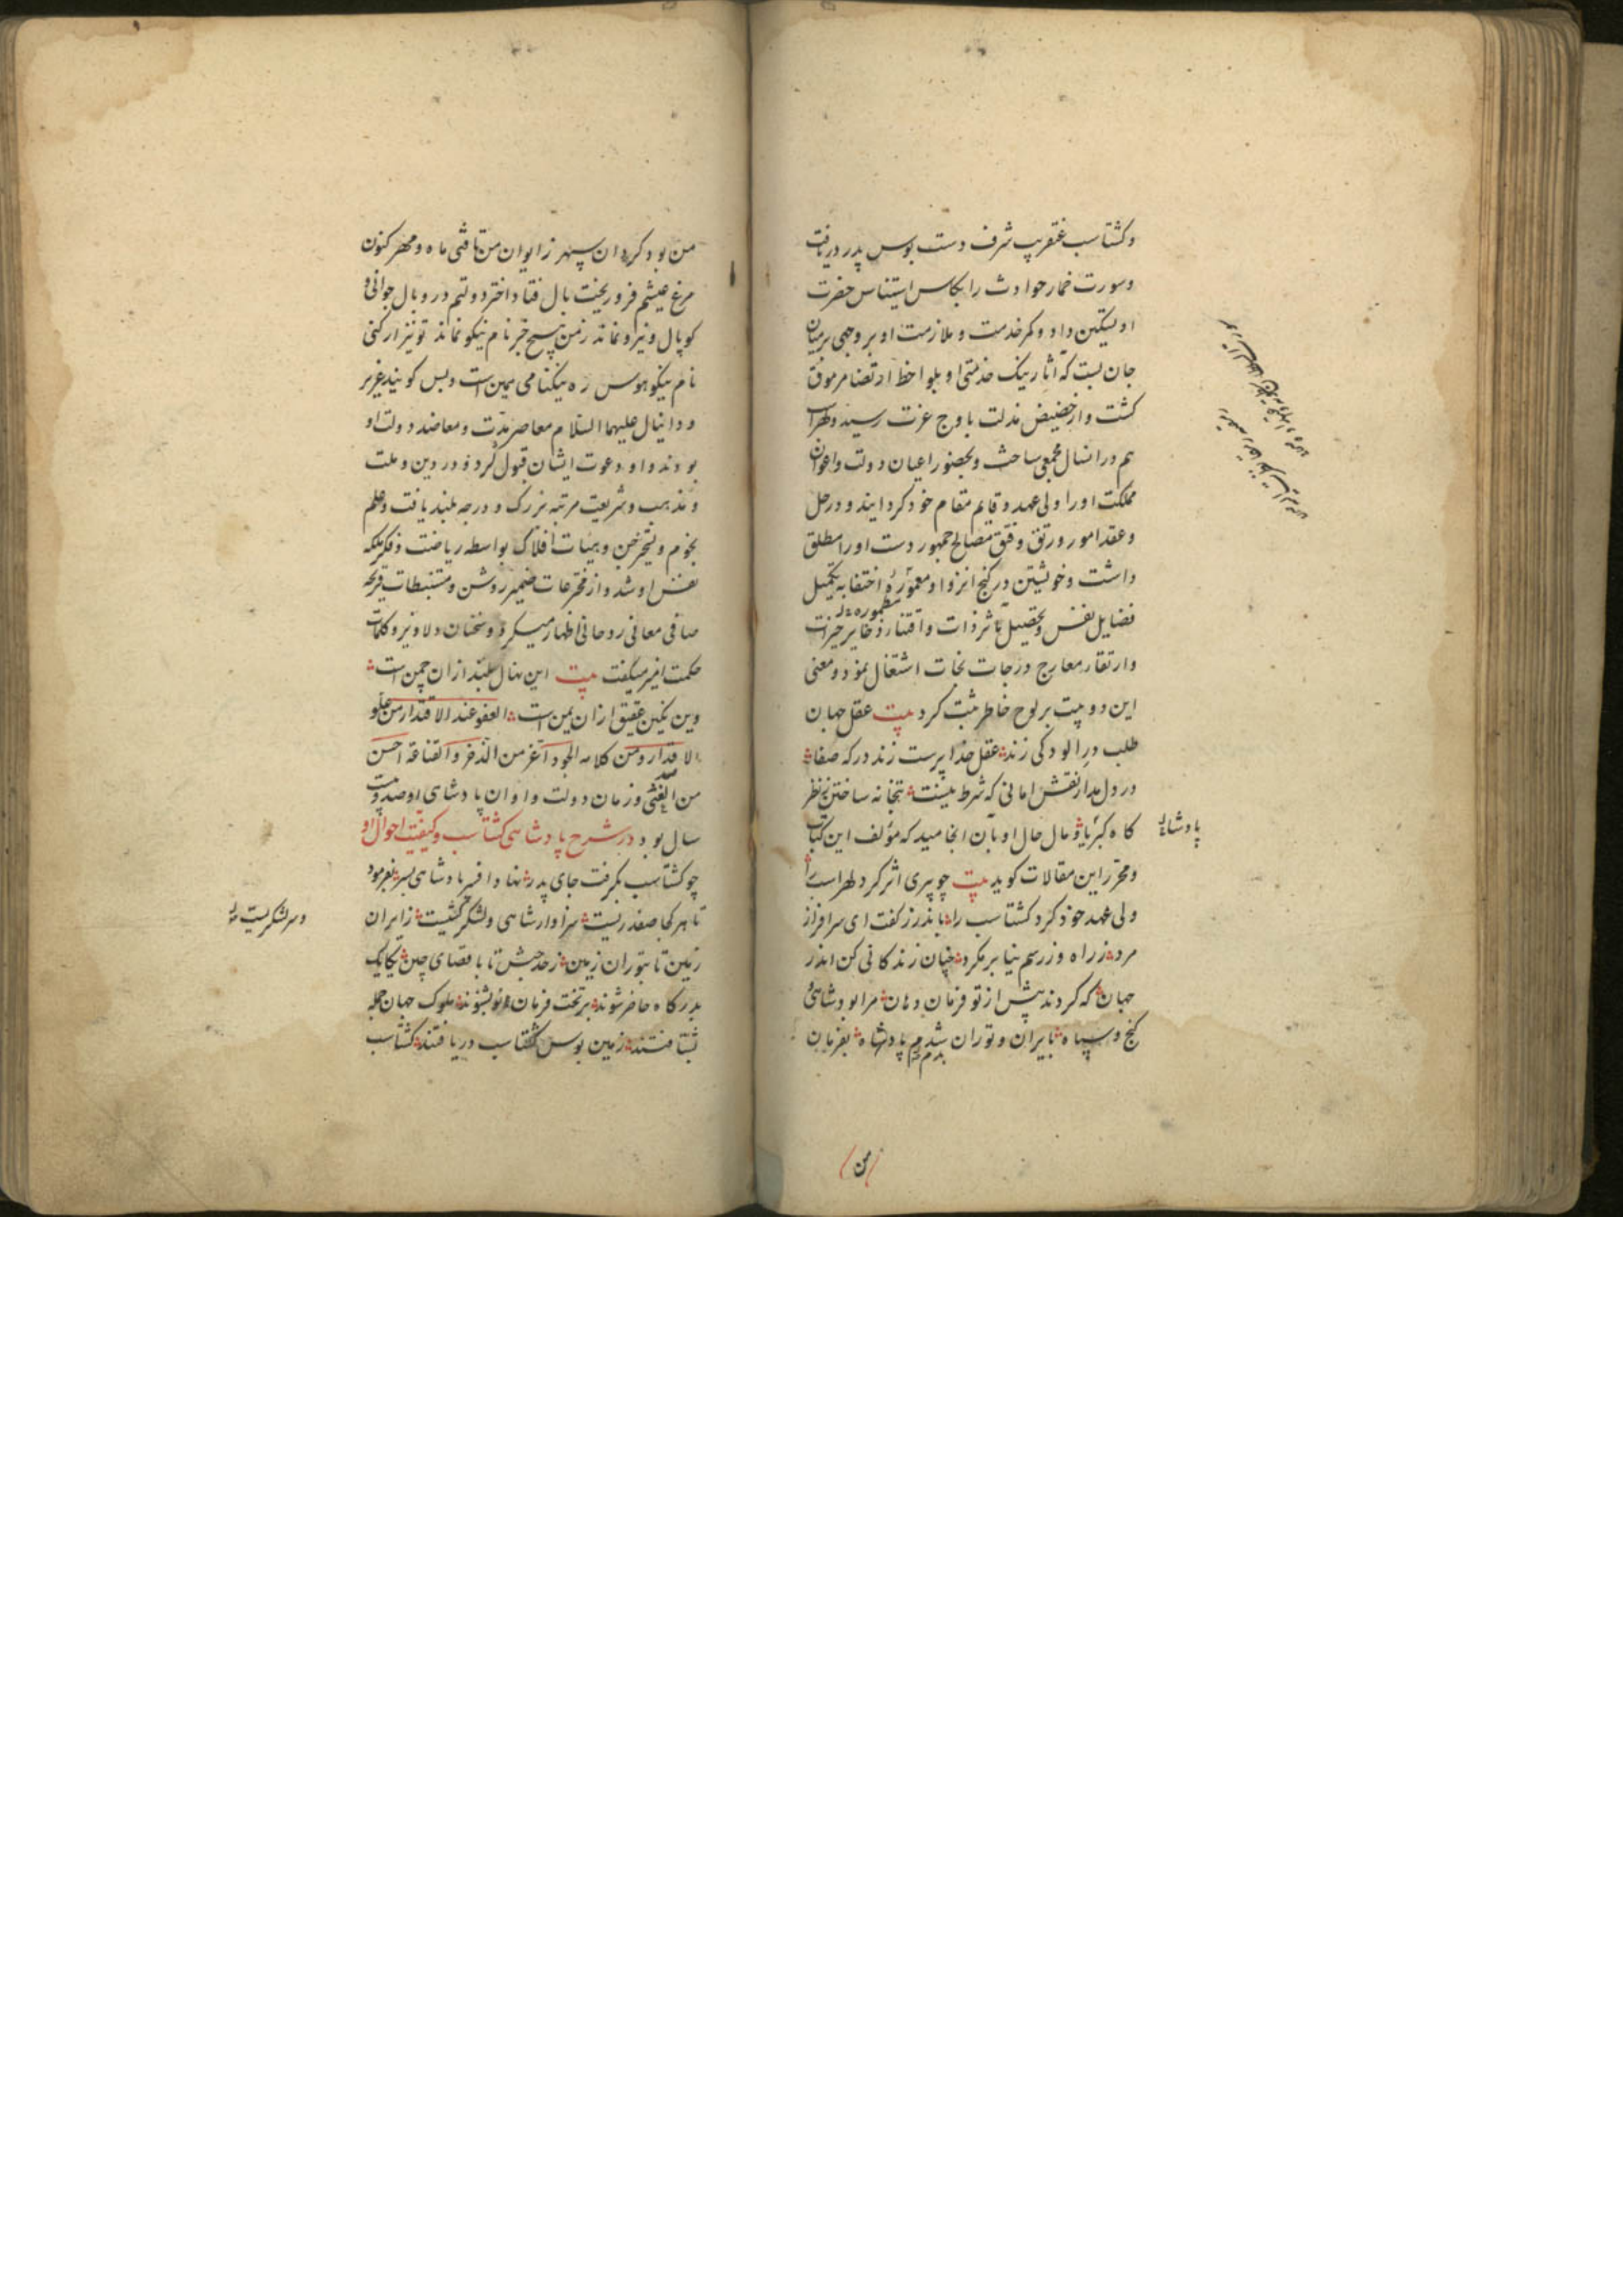 وکشتاسب عنقریب شرف دست بوس پدر دریافت
وسورت خمار حوادث را بکاس استیناس حضرت
او تسکین داد و کمر خدمت و ملازمت او بر وجهی بر میان
جان بست که آثار نیک خدمتی او بلواحظ ارتضا مرموق
کشت و از حضیض مذلت باوج عزت رسید و لهراسب
هم در انسال مجمعی ساخت و بحضور اعیان دولت و اعوان
مملکت او را ولی عهد و قایم مقام خود کردانید و در حل
و عقد امور و رتق و فتق مصالح جمهور دست او را مطلق
داشت و خویشتن در کنج انزوا و معموره اختفا به تکمیل
مطموره
فضایل نفس و تحصیل مآثر ذات و اقتناء ذخایر خیرات
و ارتقاء معارج درجات نجات اشتغال نمود و معنی
این دو بیت بر لوح خاطر ثبت کرد بیت عقل جهان
طلب در الودکی زند عقل خدا پرست زند درکه صفا
در دل مدار نقش امانی که شرط نیست بتخانه ساختن بنظر
کاه کبریا و مآل حال او بآن انجامید که مؤلف این کتاب
پادشاهی
و محرر این مقالات کوید بیت چو پیری اثر کرد لهراسب را
ولی عهد خود کرد کشتاسب را باندرز کفت ای سرافراز
مرد ز راه و ز رسم نیا بر مکرد چنان زندکانی کن اندر
جهان که کردند پیش از تو فرمان دهان مرا بود شاهی و
کنج و سپاه بایران و توران شدم پادشاه بفرمان
من
من بود کردان سپهر ز ایوان من تافتی ماه و مهر کنون
مرغ عیشم فرو ریخت بال فتاد اختر دولتم در وبال جوانی و
کوپال و نیرو نماند ز من هیچ جز نام نیکو نماند تو نیز ار کنی
نام نیکو هوس ره نیکنامی همین است و بس کویند عزیر
و دانیال علیهما السلام معاصر مدت و معاضد دولت او
بودند و او دعوت ایشان قبول کرد و در دین و ملت
و مذهب و شریعت مرتبه بزرک و درجه بلند یافت و علم
نجوم و تسخیر جن و هیئات افلاک بواسطه ریاضت و فکر ملکه
نفس او شد و از مخترعات ضمیر روشن و مستنبطات قریحه
صافی معانی روحانی اظهار میکرد و سخنان دلاویز و کلمات
حکمت امیز میکفت بیت این نهال بلند ازان چمن است
وین نکین عقیق ازان یمن است العفو عند الاقتدار من علو
الاقدار و من کلامه الجود اعز من الذخر و القناعة احسن
من الغنی و زمان دولت و اوان پادشاهی او صد و بیست
سال بود در شرح پادشاهی کشتاسب و کیفیت احوال او
چو کشتاسب بکرفت جای پدر نهاد افسر پادشاهی بسر بفرمود
تا هر کجا صفدریست سزاوار شاهی و لشکر کشیست ز ایران
و سر لشکریست
زمین تا بتوران زمین ز حد حبش تا باقصای چین یکایک
بدرکاه حاضر شوند بر تخت فرمان او بشنوند ملوک جهان جمله
بشتافتند زمین بوس کشتاسب دریافتند کشتاسب